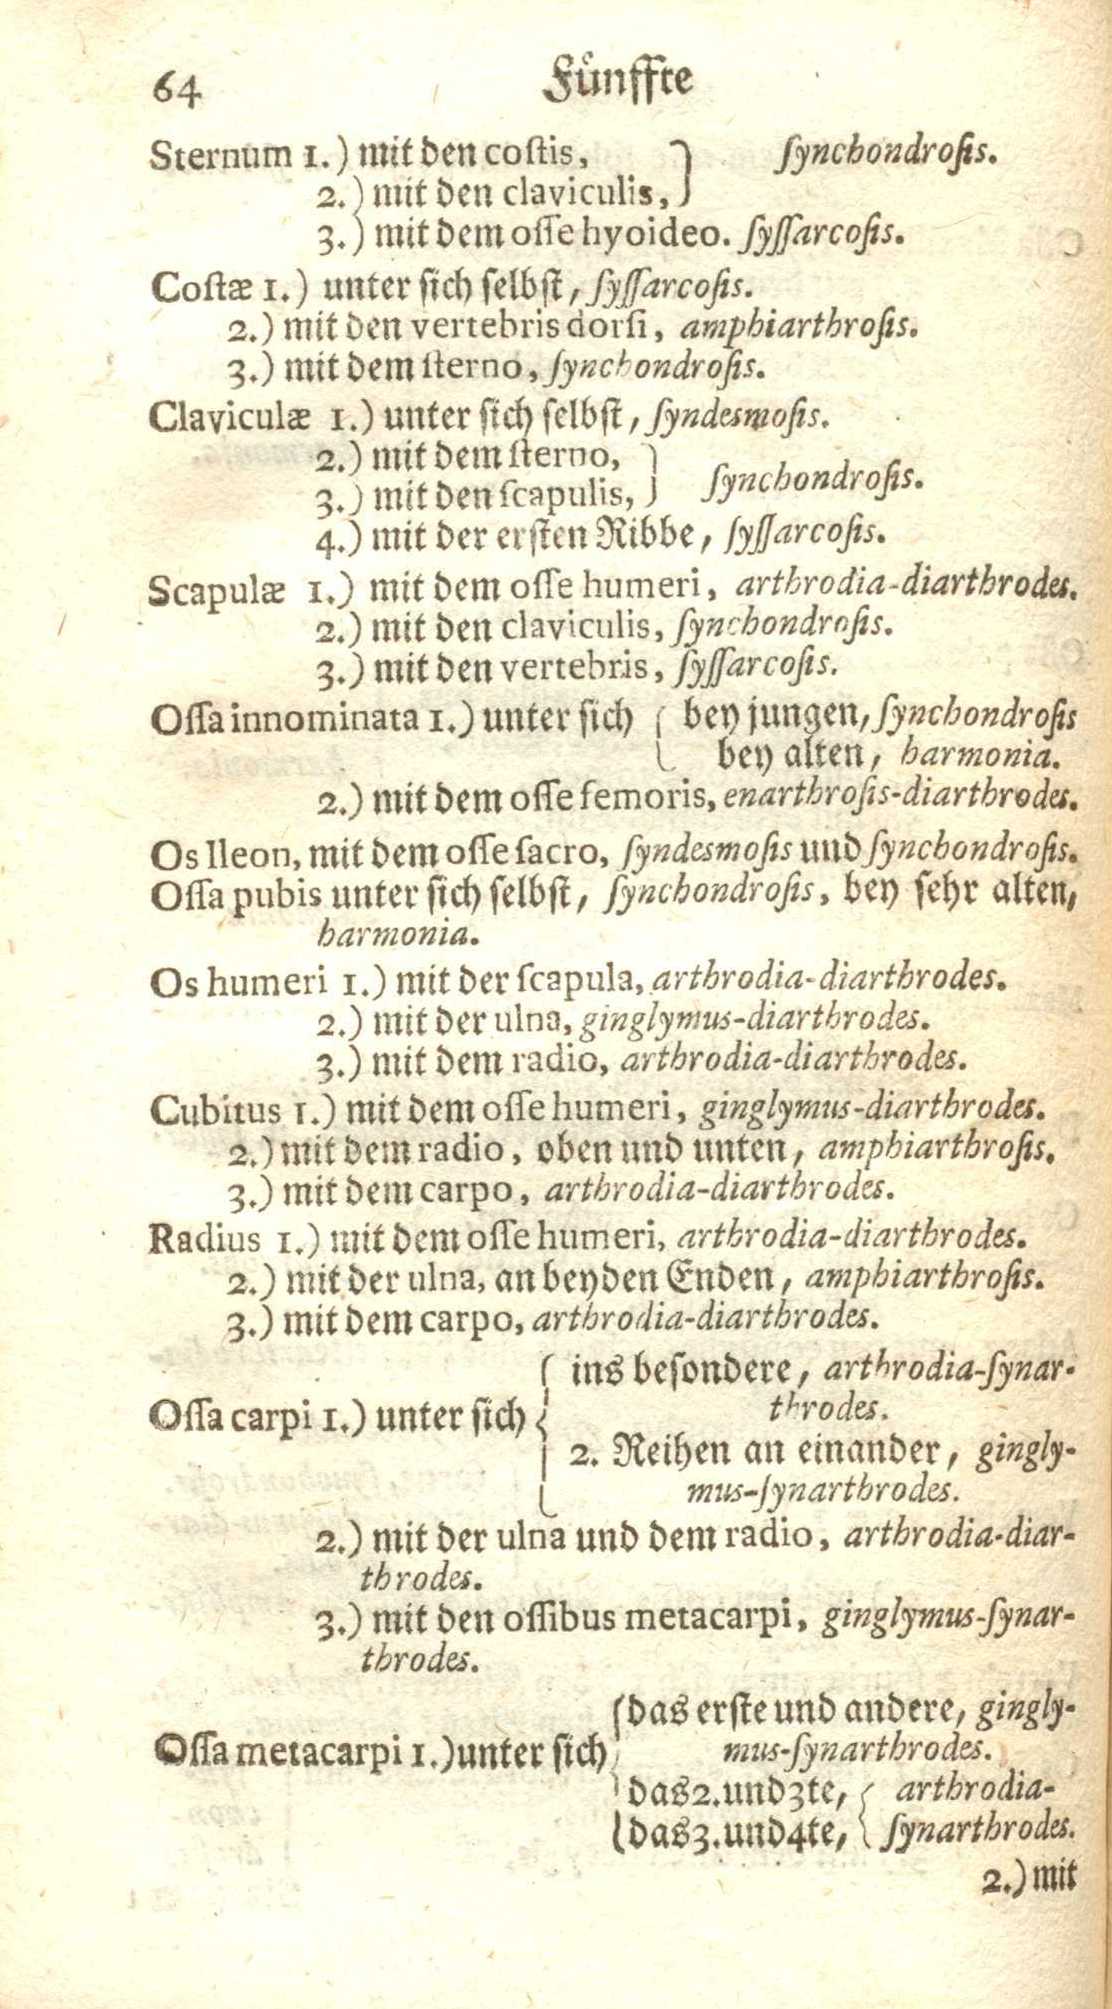 64 Fuͤnffte
Sternum 1.) mit den coſtis, } ſynchondroſis.
2.) mit den claviculis, }
3.) mit dem oſſe hyoideo. ſyſſarcoſis.
Coſtæ 1.) unter ſich ſelbſt, ſyſſarcoſis.
2.) mit den vertebris dorſi, amphiarthroſis.
3.) mit dem ſterno, ſynchondroſis.
Claviculæ 1.) unter ſich ſelbſt, ſyndesmoſis.
2.) mit dem ſterno, }
3.) mit den ſcapulis, } ſynchondroſis.
4.) mit der erſten Ribbe, ſyſſarcoſis.
Scapulæ 1.) mit dem oſſe humeri, arthrodia-diarthrodes.
2.) mit den claviculis, ſynchondroſis.
3.) mit den vertebris, ſyſſarcoſis.
Oſſa innominata 1.) unter ſich { bey jungen, ſynchondroſis
bey alten, harmonia.
2.) mit dem oſſe femoris, enarthroſis-diarthrodes.
Os Ileon, mit dem oſſe ſacro, ſyndesmoſis und ſynchondroſis.
Oſſa pubis unter ſich ſelbſt, ſynchondroſis, bey ſehr alten,
harmonia.
Os humeri 1.) mit der ſcapula, arthrodia-diarthrodes.
2.) mit der ulna, ginglymus-diarthrodes.
3.) mit dem radio, arthrodia-diarthrodes.
Cubitus 1.) mit dem oſſe humeri, ginglymus-diarthrodes.
2.) mit dem radio, oben und unten, amphiarthroſis.
3.) mit dem carpo, arthrodia-diarthrodes.
Radius 1.) mit dem oſſe humeri, arthrodia-diarthrodes.
2.) mit der ulna, an beyden Enden, amphiarthroſis.
3.) mit dem carpo, arthrodia-diarthrodes.
ins beſondere, arthrodia-ſynar-
Oſſa carpi 1.) unter ſich { throdes.
2. Reihen an einander, gingly-
mus-ſynarthrodes.
2.) mit der ulna und dem radio, arthrodia-diar-
throdes.
3.) mit den oſſibus metacarpi, ginglymus-ſynar-
throdes.
das erſte und andere, gingly-
Oſſa metacarpi 1.) unter ſich { mus-ſynarthrodes.
das 2. und 3te, { arthrodia-
das 3. und 4te, { ſynarthrodes.
2.) mit